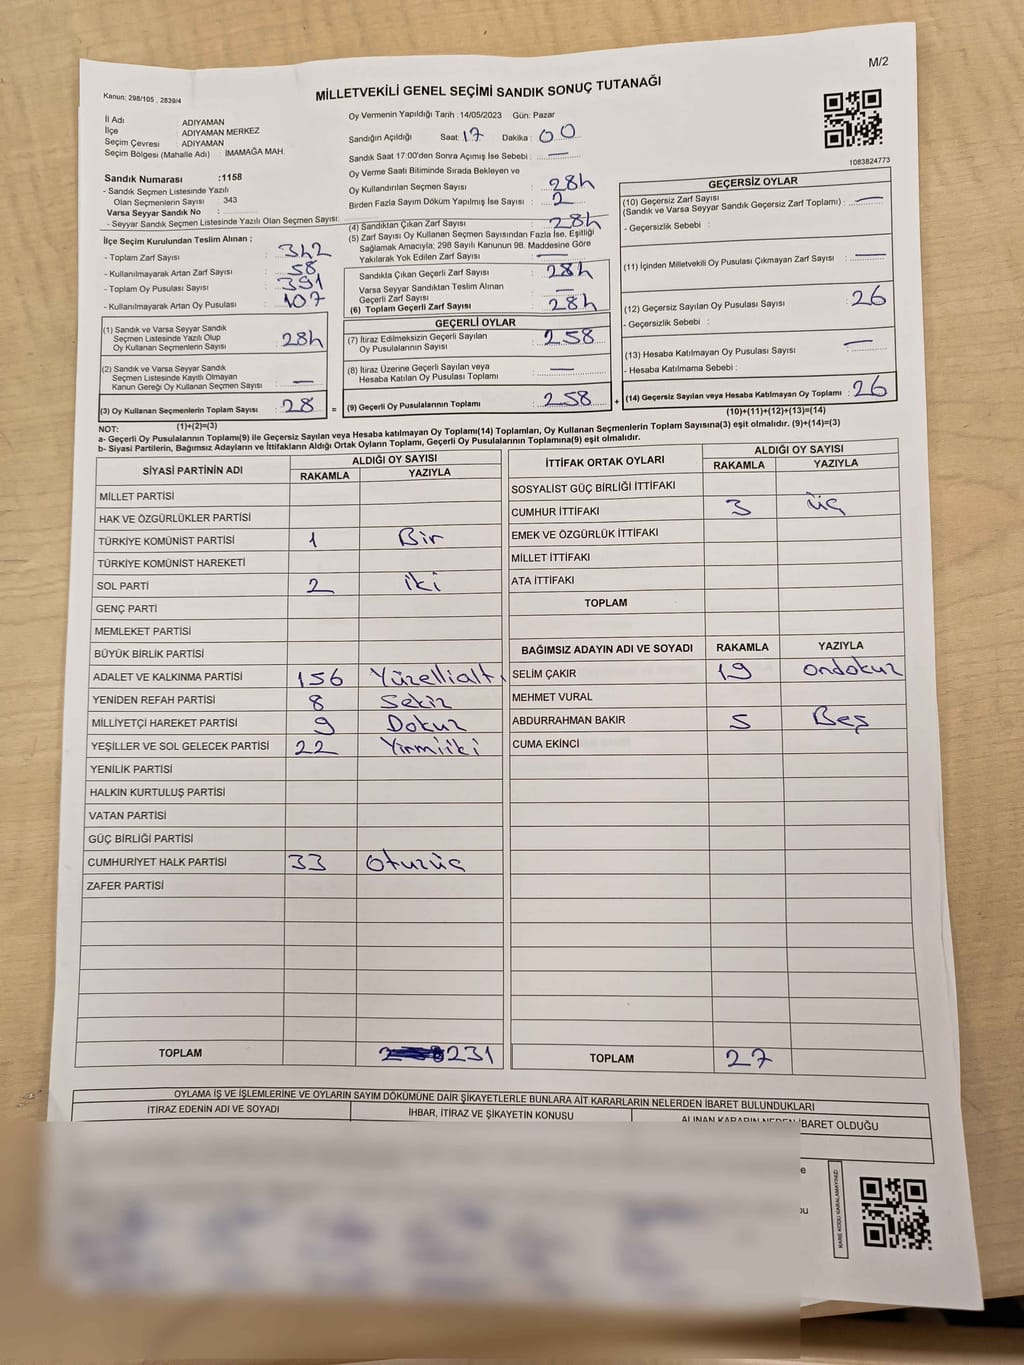 M/2
Kanun; 298/105 , 2839/4
MİLLETVEKİLİ GENEL SEÇİMİ SANDIK SONUÇ TUTANAĞI
İl Adı : ADIYAMAN
İlçe : ADIYAMAN MERKEZ
Seçim Çevresi : ADIYAMAN
Seçim Bölgesi (Mahalle Adı) : İMAMAĞA MAH.
Sandık Numarası :1158
- Sandık Seçmen Listesinde Yazılı
Olan Seçmenlerin Sayısı : 343
Varsa Seyyar Sandık No :
- Seyyar Sandık Seçmen Listesinde Yazılı Olan Seçmen Sayısı:
İlçe Seçim Kurulundan Teslim Alınan ;
- Toplam Zarf Sayısı : 342
- Kullanılmayarak Artan Zarf Sayısı : 58
- Toplam Oy Pusulası Sayısı : 391
- Kullanılmayarak Artan Oy Pusulası : 107
(1) Sandık ve Varsa Seyyar Sandık
Seçmen Listesinde Yazılı Olup
Oy Kullanan Seçmenlerin Sayısı : 284
(2) Sandık ve Varsa Seyyar Sandık
Seçmen Listesinde Kayıtlı Olmayan
Kanun Gereği Oy Kullanan Seçmen Sayısı : —
(3) Oy Kullanan Seçmenlerin Toplam Sayısı : 28
(1)+(2)=(3)
Oy Vermenin Yapıldığı Tarih :14/05/2023 Gün: Pazar
Sandığın Açıldığı Saat: 17 Dakika : 00
Sandık Saat 17:00'den Sonra Açımış İse Sebebi : —
Oy Verme Saati Bitiminde Sırada Bekleyen ve
Oy Kullandırılan Seçmen Sayısı : 284
Birden Fazla Sayım Döküm Yapılmış İse Sayısı : 2
(4) Sandıktan Çıkan Zarf Sayısı : 284
(5) Zarf Sayısı Oy Kullanan Seçmen Sayısından Fazla İse, Eşitliği
Sağlamak Amacıyla; 298 Sayılı Kanunun 98. Maddesine Göre
Yakılarak Yok Edilen Zarf Sayısı : —
Sandıkla Çıkan Geçerli Zarf Sayısı : 284
Varsa Seyyar Sandıktan Teslim Alınan
Geçerli Zarf Sayısı : —
(6) Toplam Geçerli Zarf Sayısı : 284
GEÇERLİ OYLAR
(7) İtiraz Edilmeksizin Geçerli Sayılan
Oy Pusulalarının Sayısı : 258
(8) İtiraz Üzerine Geçerli Sayılan veya
Hesaba Katılan Oy Pusulası Toplamı : —
= (9) Geçerli Oy Pusulalarının Toplamı : 258
1083824773
GEÇERSİZ OYLAR
(10) Geçersiz Zarf Sayısı
(Sandık ve Varsa Seyyar Sandık Geçersiz Zarf Toplamı) : —
- Geçersizlik Sebebi :
(11) İçinden Milletvekili Oy Pusulası Çıkmayan Zarf Sayısı : —
(12) Geçersiz Sayılan Oy Pusulası Sayısı : 26
- Geçersizlik Sebebi :
(13) Hesaba Katılmayan Oy Pusulası Sayısı : —
- Hesaba Katılmama Sebebi :
+ (14) Geçersiz Sayılan veya Hesaba Katılmayan Oy Toplamı : 26
(10)+(11)+(12)+(13)=(14)
NOT:
a- Geçerli Oy Pusulalarının Toplamı(9) ile Geçersiz Sayılan veya Hesaba katılmayan Oy Toplamı(14) Toplamları, Oy Kullanan Seçmenlerin Toplam Sayısına(3) eşit olmalıdır. (9)+(14)=(3)
b- Siyasi Partilerin, Bağımsız Adayların ve İttifakların Aldığı Ortak Oyların Toplamı, Geçerli Oy Pusulalarının Toplamına(9) eşit olmalıdır.
SİYASİ PARTİNİN ADI ALDIĞI OY SAYISI
RAKAMLA YAZIYLA
MİLLET PARTİSİ
HAK VE ÖZGÜRLÜKLER PARTİSİ
TÜRKİYE KOMÜNİST PARTİSİ 1 Bir
TÜRKİYE KOMÜNİST HAREKETİ
SOL PARTİ 2 iki
GENÇ PARTİ
MEMLEKET PARTİSİ
BÜYÜK BİRLİK PARTİSİ
ADALET VE KALKINMA PARTİSİ 156 Yüzellialtı
YENİDEN REFAH PARTİSİ 8 Sekiz
MİLLİYETÇİ HAREKET PARTİSİ 9 Dokuz
YEŞİLLER VE SOL GELECEK PARTİSİ 22 Yirmiiki
YENİLİK PARTİSİ
HALKIN KURTULUŞ PARTİSİ
VATAN PARTİSİ
GÜÇ BİRLİĞİ PARTİSİ
CUMHURİYET HALK PARTİSİ 33 Otuzüç
ZAFER PARTİSİ
TOPLAM 231
İTTİFAK ORTAK OYLARI ALDIĞI OY SAYISI
RAKAMLA YAZIYLA
SOSYALİST GÜÇ BİRLİĞİ İTTİFAKI
CUMHUR İTTİFAKI 3 üç
EMEK VE ÖZGÜRLÜK İTTİFAKI
MİLLET İTTİFAKI
ATA İTTİFAKI
TOPLAM
BAĞIMSIZ ADAYIN ADI VE SOYADI RAKAMLA YAZIYLA
SELİM ÇAKIR 19 ondokuz
MEHMET VURAL
ABDURRAHMAN BAKIR 5 Beş
CUMA EKİNCİ
TOPLAM 27
OYLAMA İŞ VE İŞLEMLERİNE VE OYLARIN SAYIM DÖKÜMÜNE DAİR ŞİKAYETLERLE BUNLARA AİT KARARLARIN NELERDEN İBARET BULUNDUKLARI
İTİRAZ EDENİN ADI VE SOYADI İHBAR, İTİRAZ VE ŞİKAYETİN KONUSU ALINAN KARARIN NEDEN İBARET OLDUĞU
KARE KODU KARALAMAYINIZ!